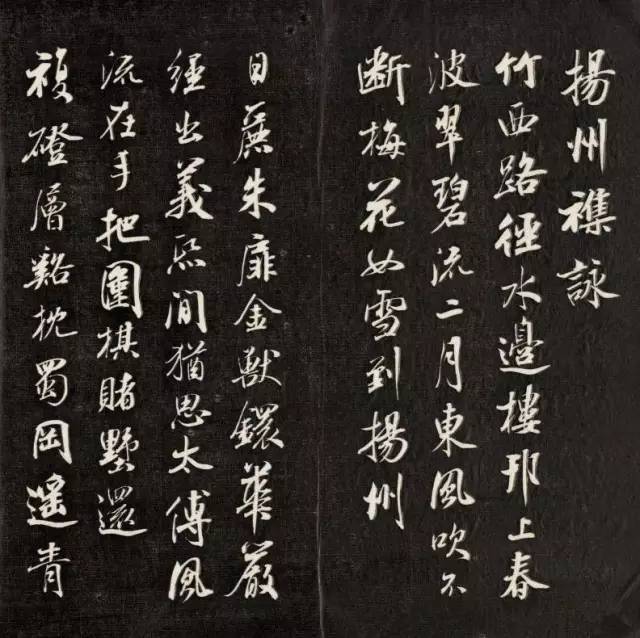 揚州襍詠
竹西路徑水邉樓邗上春
波翠碧流二月東風吹不
断梅花如雪到揚州
日麗朱扉金獸鐶華嚴
經出義熙間猶思太傅風
流在手把圍棋賭墅還
複磴層谿枕蜀岡遥青